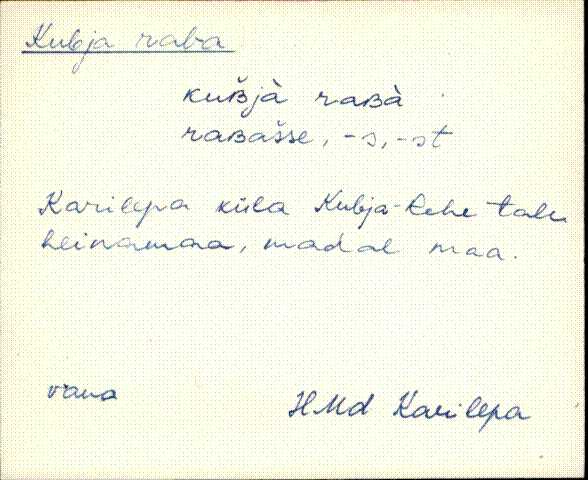 Kubja raba
kuʙ̌jà raʙà
raʙašse, -s, -st
Karilepa küla Kubja-Rehe talu
heinamaa, madal maa.
vana
HMd Karilepa